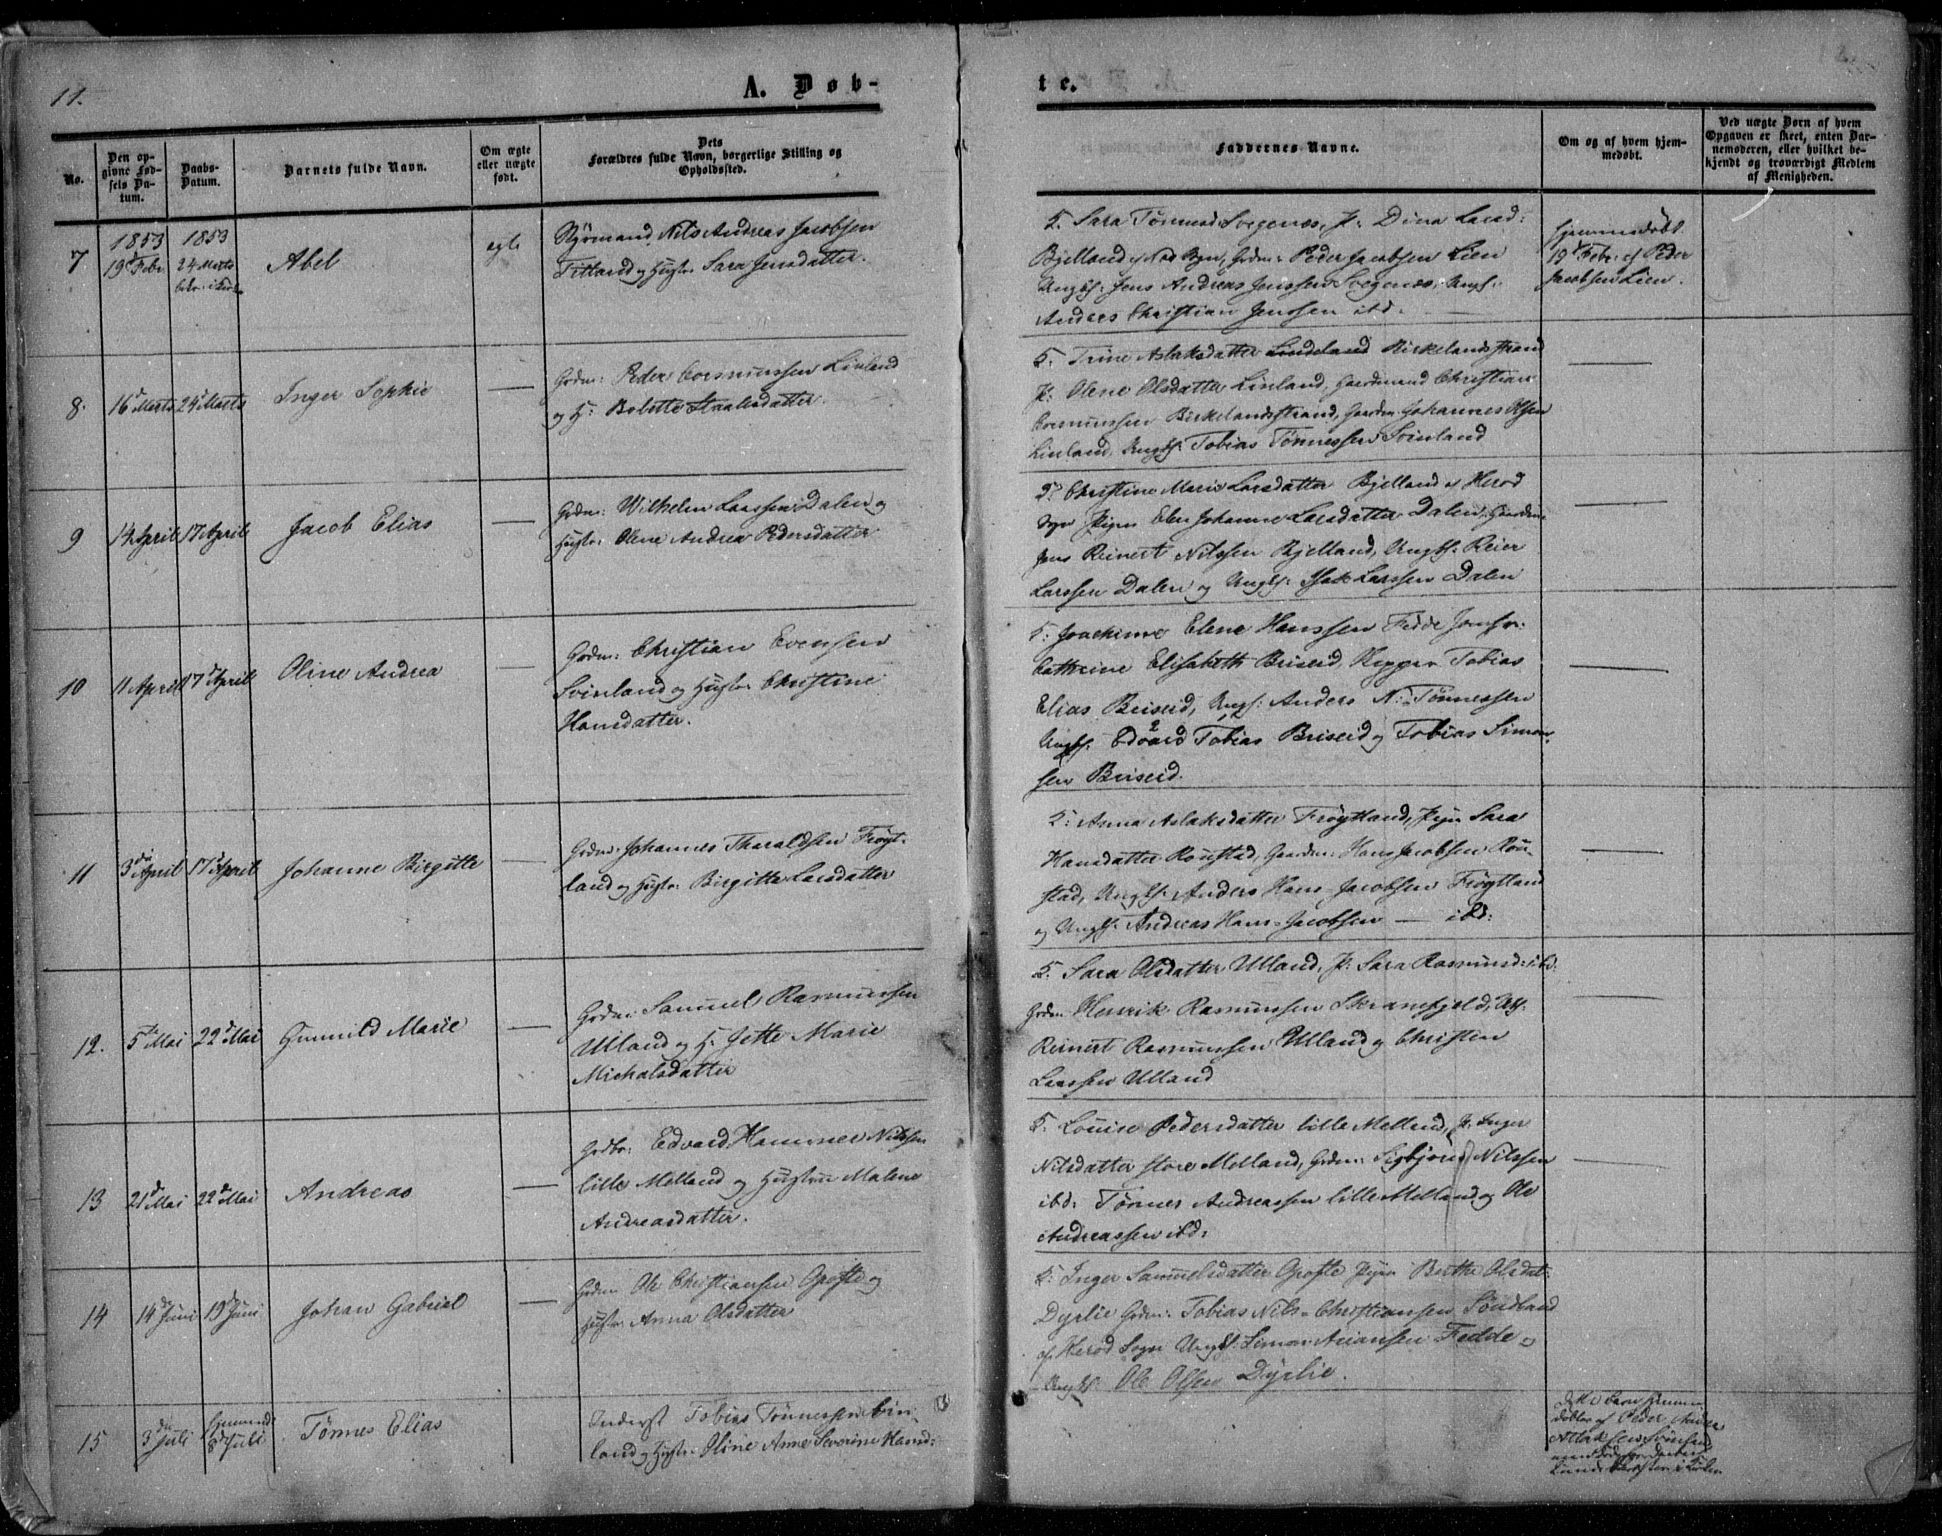 11.
A. Døb-
te.
No.
Den op-
givne Fød-
sels Da-
tum.
Daabs-
Datum.
Barnets fulde Navn.
Om ægte
eller uægte
født.
Dets
Forældres fulde Navn, borgerlige Stilling og
Opholdssted.
Faddernes Navne.
Om og af hvem hjem-
medøbt.
Ved uægte Børn af hvem
Opgaven er skeet, enten Bar-
nemoderen, eller hvilket be-
kjendt og troværdigt Medlem
af Menigheden.
7
1853
19d Febr
1853
24 Marts
Abel
egte
Styrmand Nils Andreas Jacobsen
Fitland og Hustr: Sara Jensdatter.
Sara Tønnesd Svegenæs, P: Dina Larsd:
Bjelland Grdm: Peder Jacobsen Lien
Ungk: Jens Andreas Jenssen Svegenæs, Ungk.
Anders Christian Jenssen ibd.
Hjemmedøbt
19d Febr: af Peder
Jacobsen Lien.
8.
16d Marts
24d Marts
Inger Sophie
—
Grdm: Peder Gormunssen Linland
og H: Bolette Staalesdatter.
Trine Aslaksdatter Lindeland Birkelandsstrand
P: Olene Olsdatter Linland, Gaardmand Christian
Gormunssen Birkelandsstrand, Gaardm Johannes Olsen
Linland, Ungk: Tobias Tønnessen Svinland
—
9
14 April
17d April
Jacob Elias
—
Grdm: Wilhelm Larssen Dalen og
Hustr: Olene Andrea Pedersdatter
Christine Marie Larsdatter Bjelland af Herod
Sogn Pigen Elen Johanne Larsdatter Dalen, Gaardm:
Jens Reinert Nilssen Bjelland, Ungk: Reier
Larssen Dalen og Ungk: Isak Larssen Dalen
—
10
11 April
17d April
Oline Andrea
—
Grdm: Christian Evensen
Svinland og Hustr: Christine
Hansdatter.
Joachime Elene Hanssen Fedde Jomfr:
Cathrine Elisabeth Briseid, Tobias
Elias Briseid, Ungk: Anders N: Tønnessen
Ungk: Edvard Tobias Briseid og Tobias Simon-
sen Briseid.
—
11
3die April
17d April
Johanne Birgitte
—
Grdm: Johannes Tharaldsen Frøyt-
land og Hustr: Birgitte Larsdatter
Anna Aslaksdatter Frøytland, Pigen Sara
Hansdatter Roustad, Gaardm: Hans Jacobsen Rou-
stad, Ungk: Anders Hans-Jacobsen Frøytland
og Ungk: Andreas Hans-Jacobsen — ibd:
—
12.
5te Mai
22d Mai
Gunnild Marie
—
Grdm: Samuel Rasmussen
Ulland og H: Jette Marie
Michalsdatter
Sara Olsdatter Ulland, P: Sara Rasmusd: ibd:
Grdm: Henrik Rasmussen Skranefjeld, Ungk:
Reinert Rasmussen Ulland og Christen
Larssen Ulland
—
13
21d Mai
22d Mai
Andreas
—
Grdbr: Edvard Hammer Nilssen
lille Melland og Hustru Malene
Andreasdatter.
Louise Pedersdatter lille Melland, P: Inger
Nilsdatter store Melland, Grdm: Sigbjørn Nilssen
ibd: Tønnes Andreassen lille Melland og Ole
Andreassen ibd:
—
14
14d Juni
19d Juni
Johan Gabriel
—
Grdm: Ole Christiansen Opofte og
Hustr: Anna Olsdatter
Inger Samuelsdatter Opofte Pigen Berthe Olsdat:
Dyrlie Grdm: Tobias Nils-Christiansen Søndland
af Herod Sogn Ungk: Simon Ariansen Fedde og
Ungk: Ole Olsen Dyrlie.
15
3die Juli
8d Juli
Tønnes Elias
Inderst Tobias Tønnessen Lin-
land og Hustr: Oline Anne Severine Hansd:
dette Barn hjemme
døbtes af Peder